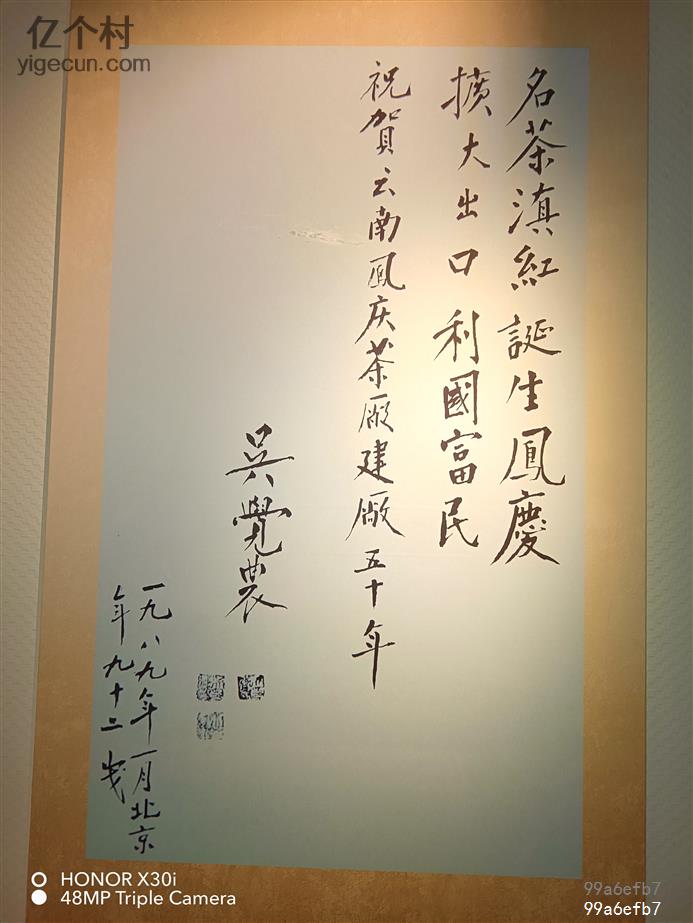 亿个村
yigecun.com
名茶滇紅誕生鳳慶
擴大出口利國富民
祝賀云南凤庆茶廠建廠五十年
吳覺農
一九八九年一月北京
年九十二歲
HONOR X30i
48MP Triple Camera
99a6efb7
99a6efb7